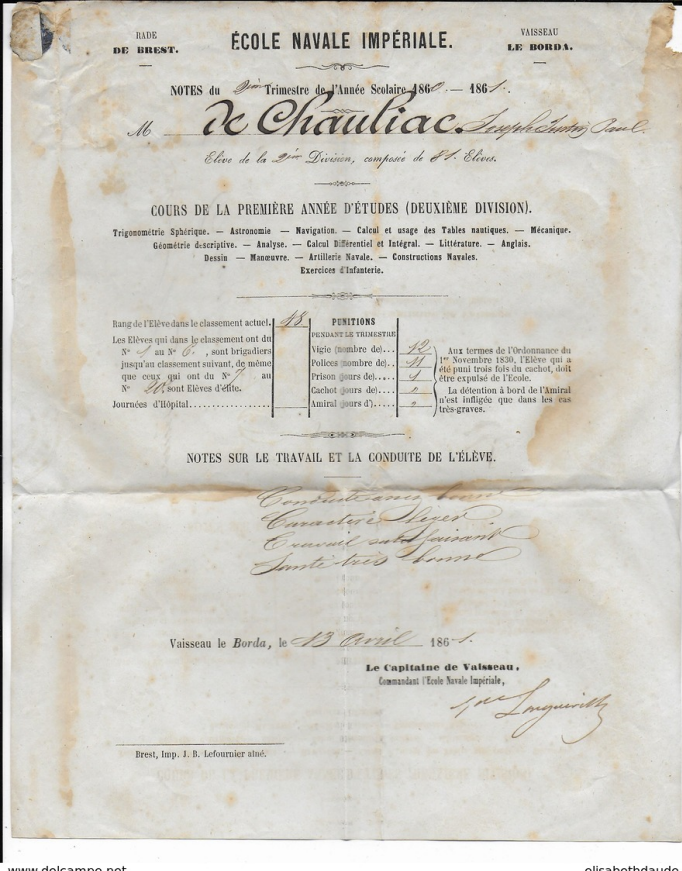 RADE
DE BREST.
ÉCOLE NAVALE IMPÉRIALE.
VAISSEAU
LE BORDA.
NOTES du 2ème Trimestre de l'Année Scolaire 1860. — 1861.
M de Chauliac. Joseph Paul.
Elève de la 2ème Division, composée de 81. Elèves.
COURS DE LA PREMIÈRE ANNÉE D'ÉTUDES (DEUXIÈME DIVISION).
Trigonométrie Sphérique. — Astronomie — Navigation. — Calcul et usage des Tables nautiques. — Mécanique.
Géométrie descriptive. — Analyse. — Calcul Différentiel et Intégral. — Littérature. — Anglais.
Dessin — Manœuvre. — Artillerie Navale. — Constructions Navales.
Exercices d'Infanterie.
Rang de l'Elève dans le classement actuel. 48
Les Elèves qui dans le classement ont du
Nº 1 au Nº 6. , sont brigadiers
jusqu'au classement suivant, de même
que ceux qui ont du Nº 7. au
Nº 20. sont Elèves d'élite.
Journées d'Hôpital
PUNITIONS
PENDANT LE TRIMESTRE
Vigie (nombre de)... 12
Polices (nombre de)... 11
Prison (jours de).... 1
Cachot (jours de).... "
Amiral (jours d')..... "
Aux termes de l'Ordonnance du
1er Novembre 1830, l'Elève qui a
été puni trois fois du cachot, doit
être expulsé de l'Ecole.
La détention à bord de l'Amiral
n'est infligée que dans les cas
très-graves.
NOTES SUR LE TRAVAIL ET LA CONDUITE DE L'ÉLÈVE.
Conduite assez bonne
Caractère léger
Travail satisfaisant
Santé très bonne
Vaisseau le Borda, le 13 Avril 1861.
Le Capitaine de Vaisseau,
Commandant l'Ecole Navale Impériale,
Longueville
Brest, Imp. J. B. Lefournier aîné.
www.delcampe.net
elisabethdaude